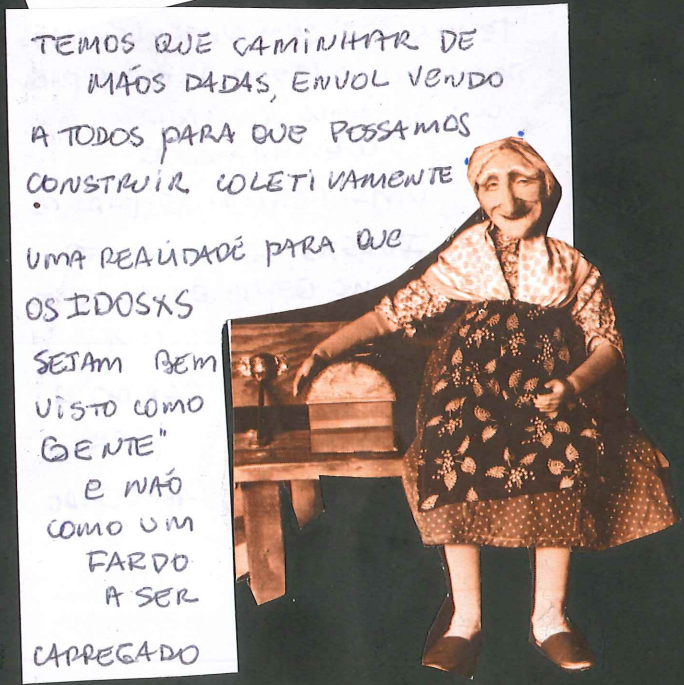 TEMOS QUE CAMINHAR DE
MÃOS DADAS, ENVOLVENDO
A TODOS PARA QUE POSSAMOS
CONSTRUIR COLETIVAMENTE
UMA REALIDADE PARA QUE
OS IDOSXS
SEJAM BEM
VISTO COMO
GENTE"
E NÃO
COMO UM
FARDO
A SER
CARREGADO